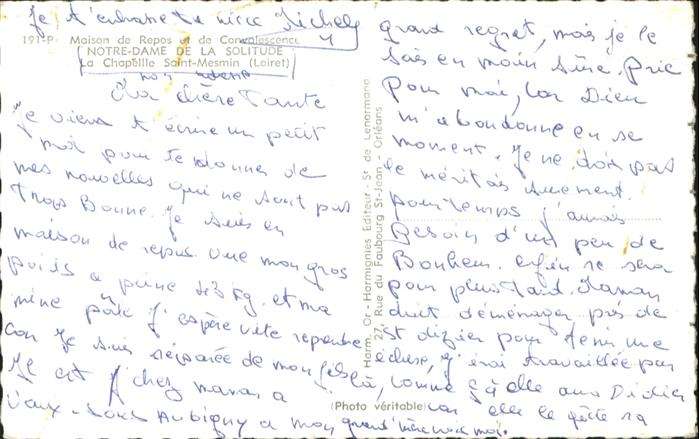 Je t'embrasse ta nièce Michele
191-P- Maison de Repos et de Convalescence
NOTRE-DAME DE LA SOLITUDE
La Chapellle Saint-Mesmin (Loiret)
mon adresse
Ma chère Tante
Je viens t écrire un petit
mot pour te donner de
mes nouvelles qui ne sont pas
trops Bonne. Je suis en
maison de repos vue mon gros
poids a peine 43 kg. et ma
mine pâle j'espère vite reprendre
car je suis séparée de mon fils
Il est chez maman a
Vaux-sous Aubigny a mon grand
grand regret, mais je le
sais en main sûre. Prie
pour moi, car Dieu
m'abandonne en se
moment. Je ne dois pas
le méritais surement.
pourtemps j'aurais
Besoin d'un peu de
Bonheur. enfin se sera
pour plus tard. Maman
doit déménager près de
st dizier pour tenir une
écluse, j'irai travaillée par
là, comme ça elle aura Didier
car elle le gâte sa
mon
Harm. Or - Harmignies Editeur - St de Lenormand
27, Rue du Faubourg St-Jean - Orléans
(Photo véritable)